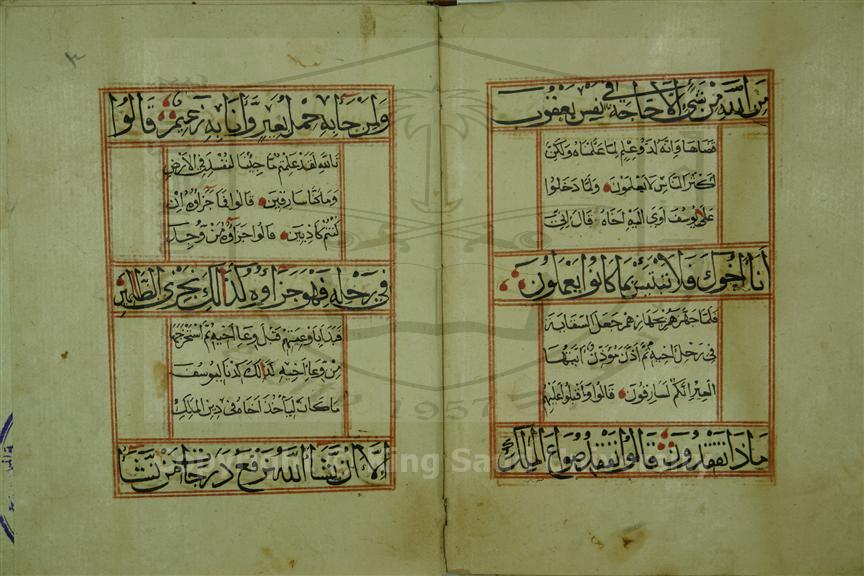 مِنَ اللَّهِ مِنْ شَيْءٍ إِلَّا حَاجَةً فِي نَفْسِ يَعْقُوبَ
قضاها وانه لذو علم لما علمناه ولكن
اكثر الناس لا يعلمون ولما دخلوا
على يوسف اوى اليه اخاه قال اني
أنا أخوك فلا تبتئس بما كانوا يعملون
فلما جهزهم بجهازهم جعل السقاية
في رحل اخيه ثم اذن مؤذن ايتها
العير انكم لسارقون قالوا واقبلوا عليهم
ماذا تفقدون قالوا نفقد صواع الملك
٣
ولمن جا به حمل بعير وانا به زعيم قالوا
تالله لقد علمتم ما جينا لنفسد في الارض
وما كنا سارقين قالوا فما جزاوه ان
كنتم كاذبين قالوا جزاوه من وجد
في رحله فهو جزاوه كذالك نجزي الظالمين
فبدا باوعيتهم قبل وعا اخيه ثم استخرجها
من وعا اخيه كذالك كدنا ليوسف
ما كان لياخذ اخاه في دين الملك
الا ان يشا الله نرفع درجات من نشا
1957
King Saud